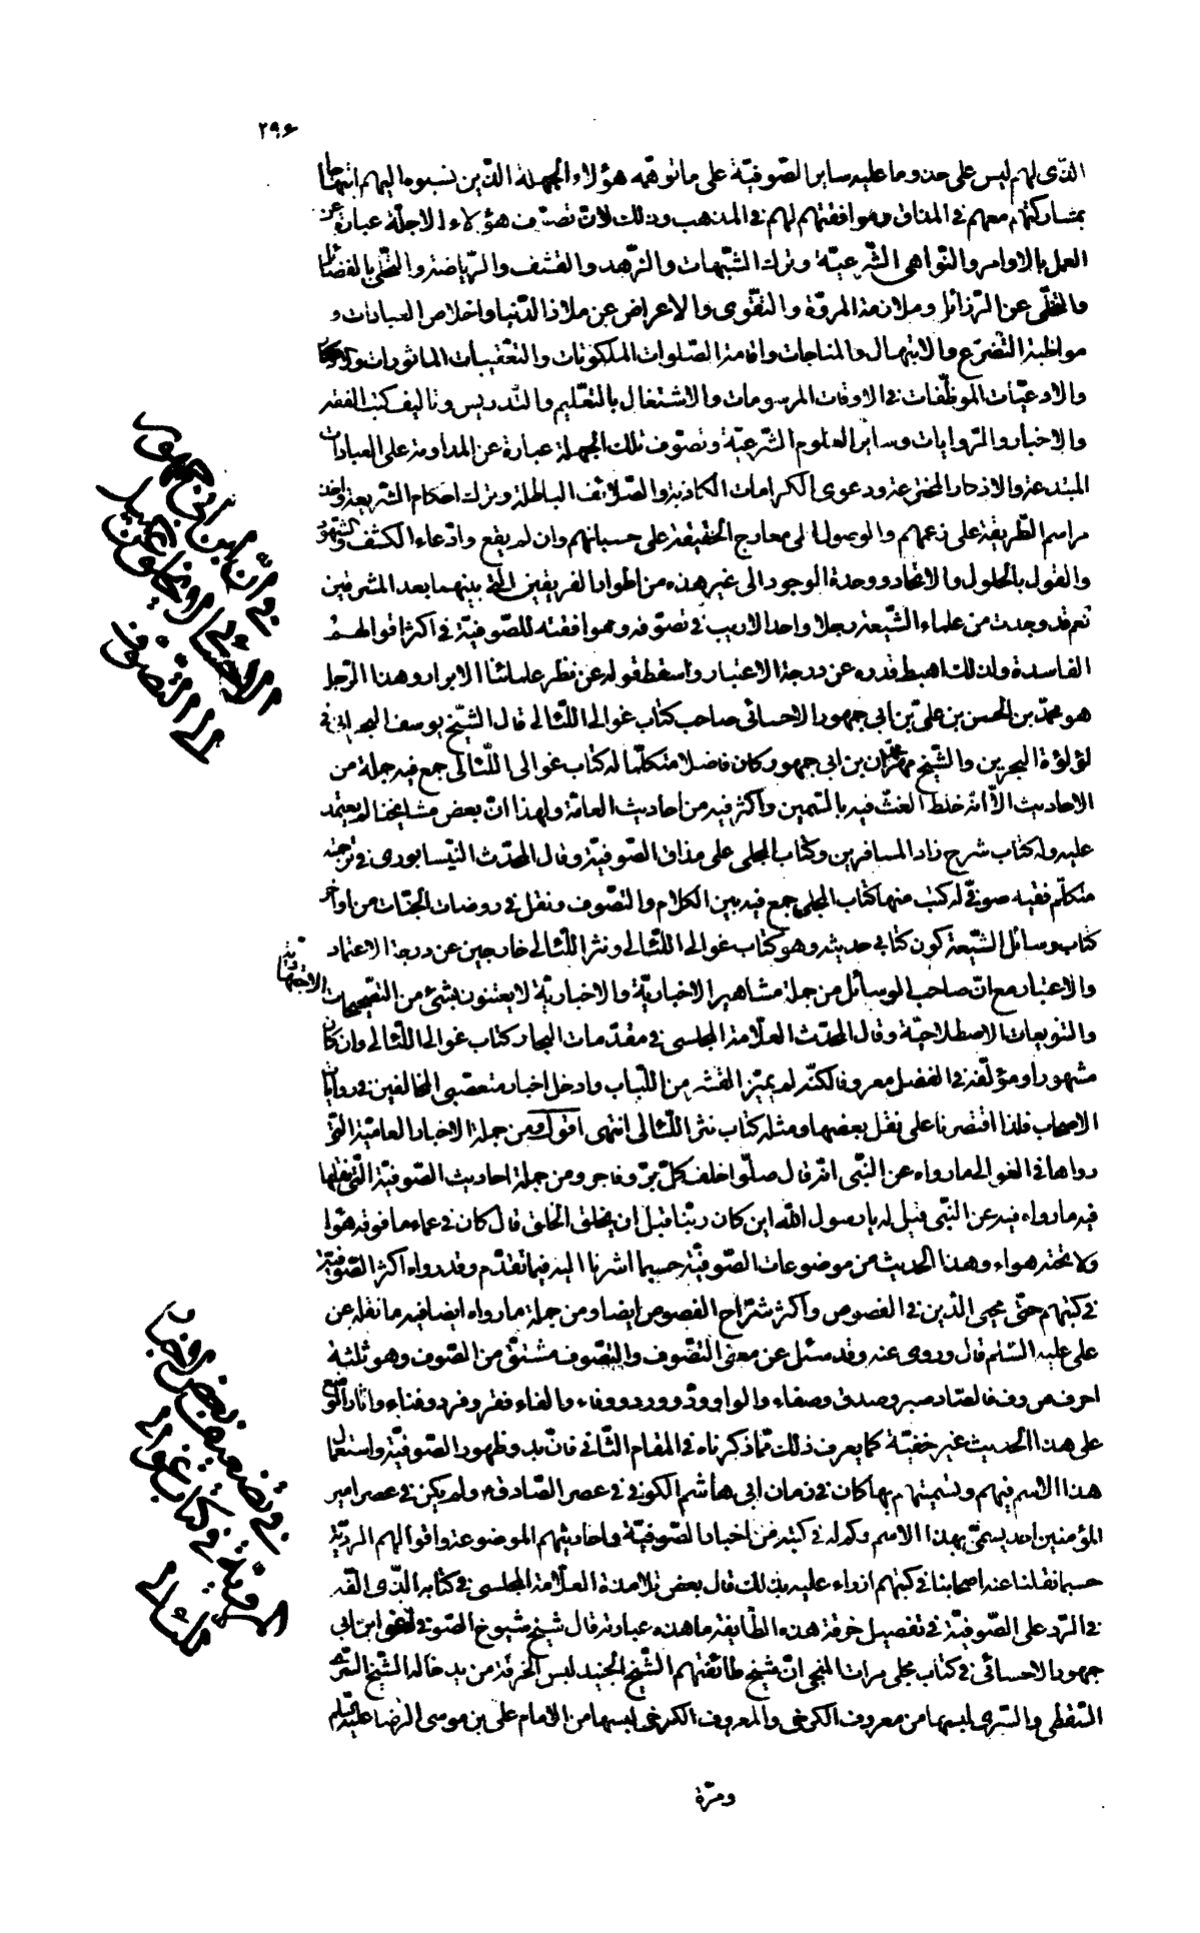 ٢٩۶
الذى لهم ليس على حد وما عليه ساير الصّوفيّة على ما توهّمه هؤلاء الجهلة الذين نسبوه اليهم
بمشاركتهم معهم فى المذاق وموافقتهم لهم فى المذهب وذلك لانّ تصوّف هؤلاء الاجلّة عبارة عن
العمل بالاوامر والنّواهى الشّرعيّة وترك الشّبهات والزّهد والقشف والرّياضة والتحّلى بالفضائل
والتخلّى عن الرّزائل وملازمة المروّة والتقّوى والاعراض عن ملاذ الدّنيا واخلاص العبادات و
مواظبة التّضرّع والابتهال والمناجات واقامة الصّلوات الملكوتات والتعّقيبات الماثورات
والادعيّات الموظّفات فى الاوقات المرسومات والاشتغال بالتعّليم والتّدريس وتاليف كتب الفقه
والاخبار والرّوايات وساير العلوم الشّرعيّة وتصوّف تلك الجهلة عبارة عن المداومة على العبادات
المبتدعة والاذكار المخترعة ودعوى الكرامات الكاذبة و الباطلة وترك احكام الشّريعة واخذ
مراسم الطّريقة على زعمهم والوصول الى معارج الحقيقة على حسبانهم وان لم يقع وادّعاء الكشف والشّهود
والقول بالحلول والاتحاد ووحدة الوجود الى غير هذه من اطوار الفريقين الّتى بينهما بعد المشرقين
نعم قد وجدت من علماء الشّيعة رجلا واحدا لاريب فى تصوّفه وموافقته للصّوفيّة فى اكثر اقوالهم
الفاسدة ولذلك اهبط قدره عن درجة الاعتبار واسقط قوله عن نظر علمائنا الابرار وهذا الرّجل
هو محمّد بن الحسن بن علىّ بن ابى جمهور الاحسائى صاحب كتاب غوالى اللئالى قال الشّيخ يوسف البحرانى فى
لؤلؤة البحرين والشّيخ محمّد بن ابى جمهور كان فاضلا متكلّما له كتاب غوالى اللّئالى جمع فيه جملة من
الاحاديث الّا انّه خلط الغثّ فيه بالسّمين واكثر فيه من احاديث العامّة ولهذا انّ بعض مشايخنا لم يعتمد
عليه وله كتاب شرح زاد المسافرين وكتاب المجلى على مذاق الصّوفيّة وقال المحدّث النّيسابورى فى ترجمته
متكلّم فقيه صوفىّ له كتب منها كتاب المجلى جمع فيه بين الكلام والتصّوف ونقل فى روضات الجنّات من اواخر
كتاب وسائل الشّيعة كون كتابى حديثه وهو كتاب غوالى اللئالى ونثر اللّئالى خارجين عن درجة الاعتماد
والاعتبار مع انّ صاحب الوسائل من جملة مشاهير الاخباريّة والاخباريّة لا يعتنون بشئ من التصّحيحات الاجتهاديّة
والتنويعات الاصطلاحيّة وقال المحدّث العلّامة المجلسى فى مقدّمات البحار كتاب غوالى اللّئالى وان كان
مشهورا ومؤلّفه فى الفضل معروفا لكنّه لم يميّز القشر من اللّباب وادخل اخبار متعصّبى المخالفين فى روايات
الاصحاب فلذا اقتصرنا على نقل بعضها ومثله كتاب نثر اللّئالى انتهى اقول ومن جملة الاخبار العاميّة الّتى
رواها فى الغوالى ما رواه عن النّبى انّه قال صلّوا خلف كلّ برّ وفاجر ومن جملة احاديث الصّوفيّة الّتى نقلها
فيه ما رواه فيه عن النّبى قيل له يا رسول اللّه اين كان ربّنا قبل ان يخلق الخلق قال كان فى عماء ما فوقه هواء
ولا تحته هواء وهذا الحديث من موضوعات الصّوفيّة حسبما اشرنا اليه فيما تقدّم وقد رواه اكثر الصّوفيّة
فى كتبهم حتّى محيى الدّين فى الفصوص واكثر شرّاح الفصوص ايضا ومن جملة ما رواه ايضا فيه ما نقله عن
على عليه السّلم قال وروى عنه وقد سئل عن معنى التصّوف والتصّوف مشتقّ من الصّوف وهو ثلثة
احرف ص و ف فالصّاد صبر وصدق وصفاء والواو ودّ وورد ووفاء والفاء فقر وفرد وفناء واثار الوضع
على هذا الحديث غير خفيّة كما يعرف ذلك ممّا ذكرناه فى المقام الثّانى فانّ بدو ظهور الصّوفيّة واستعمال
هذا الاسم فيهم وتسميتهم بها كان فى زمان ابى هاشم الكوفى فى عصر الصّادق ع ولم يكن فى عصر امير
المؤمنين احد يسمّى بهذا الاسم وكم له فى كتبه من اخبار الصّوفيّة واحاديثهم الموضوعة واقوالهم الرديّة
حسبما نقلنا عنه اصحابنا فى كتبهم ازراء عليه بذلك قال بعض تلامذة العلّامة المجلسى فى كتابه الّذى الّفه
فى الرّد على الصّوفيّة فى تفصيل خرقة هذه الطّايفة ما هذه عبارته قال شيخ شيوخ الصّوفى ابن ابى
جمهور الاحسائى فى كتاب مجلى مرات المنجى انّ شيخ طائفتهم الشّيخ الجنيد لبس الخرقة من يد خاله الشّيخ السّرى
السّقطى والسّرى لبسها من معروف الكرخى والمعروف الكرخى لبسها من الامام على بن موسى الرضا عليه السّلم
ومرّة
فى أنّ ابن ابى جمهور
الاحسائى
الى التصّوف
فى تضعيف بعض الاخبار
المرويّة فى كتاب غوالى
اللئالى